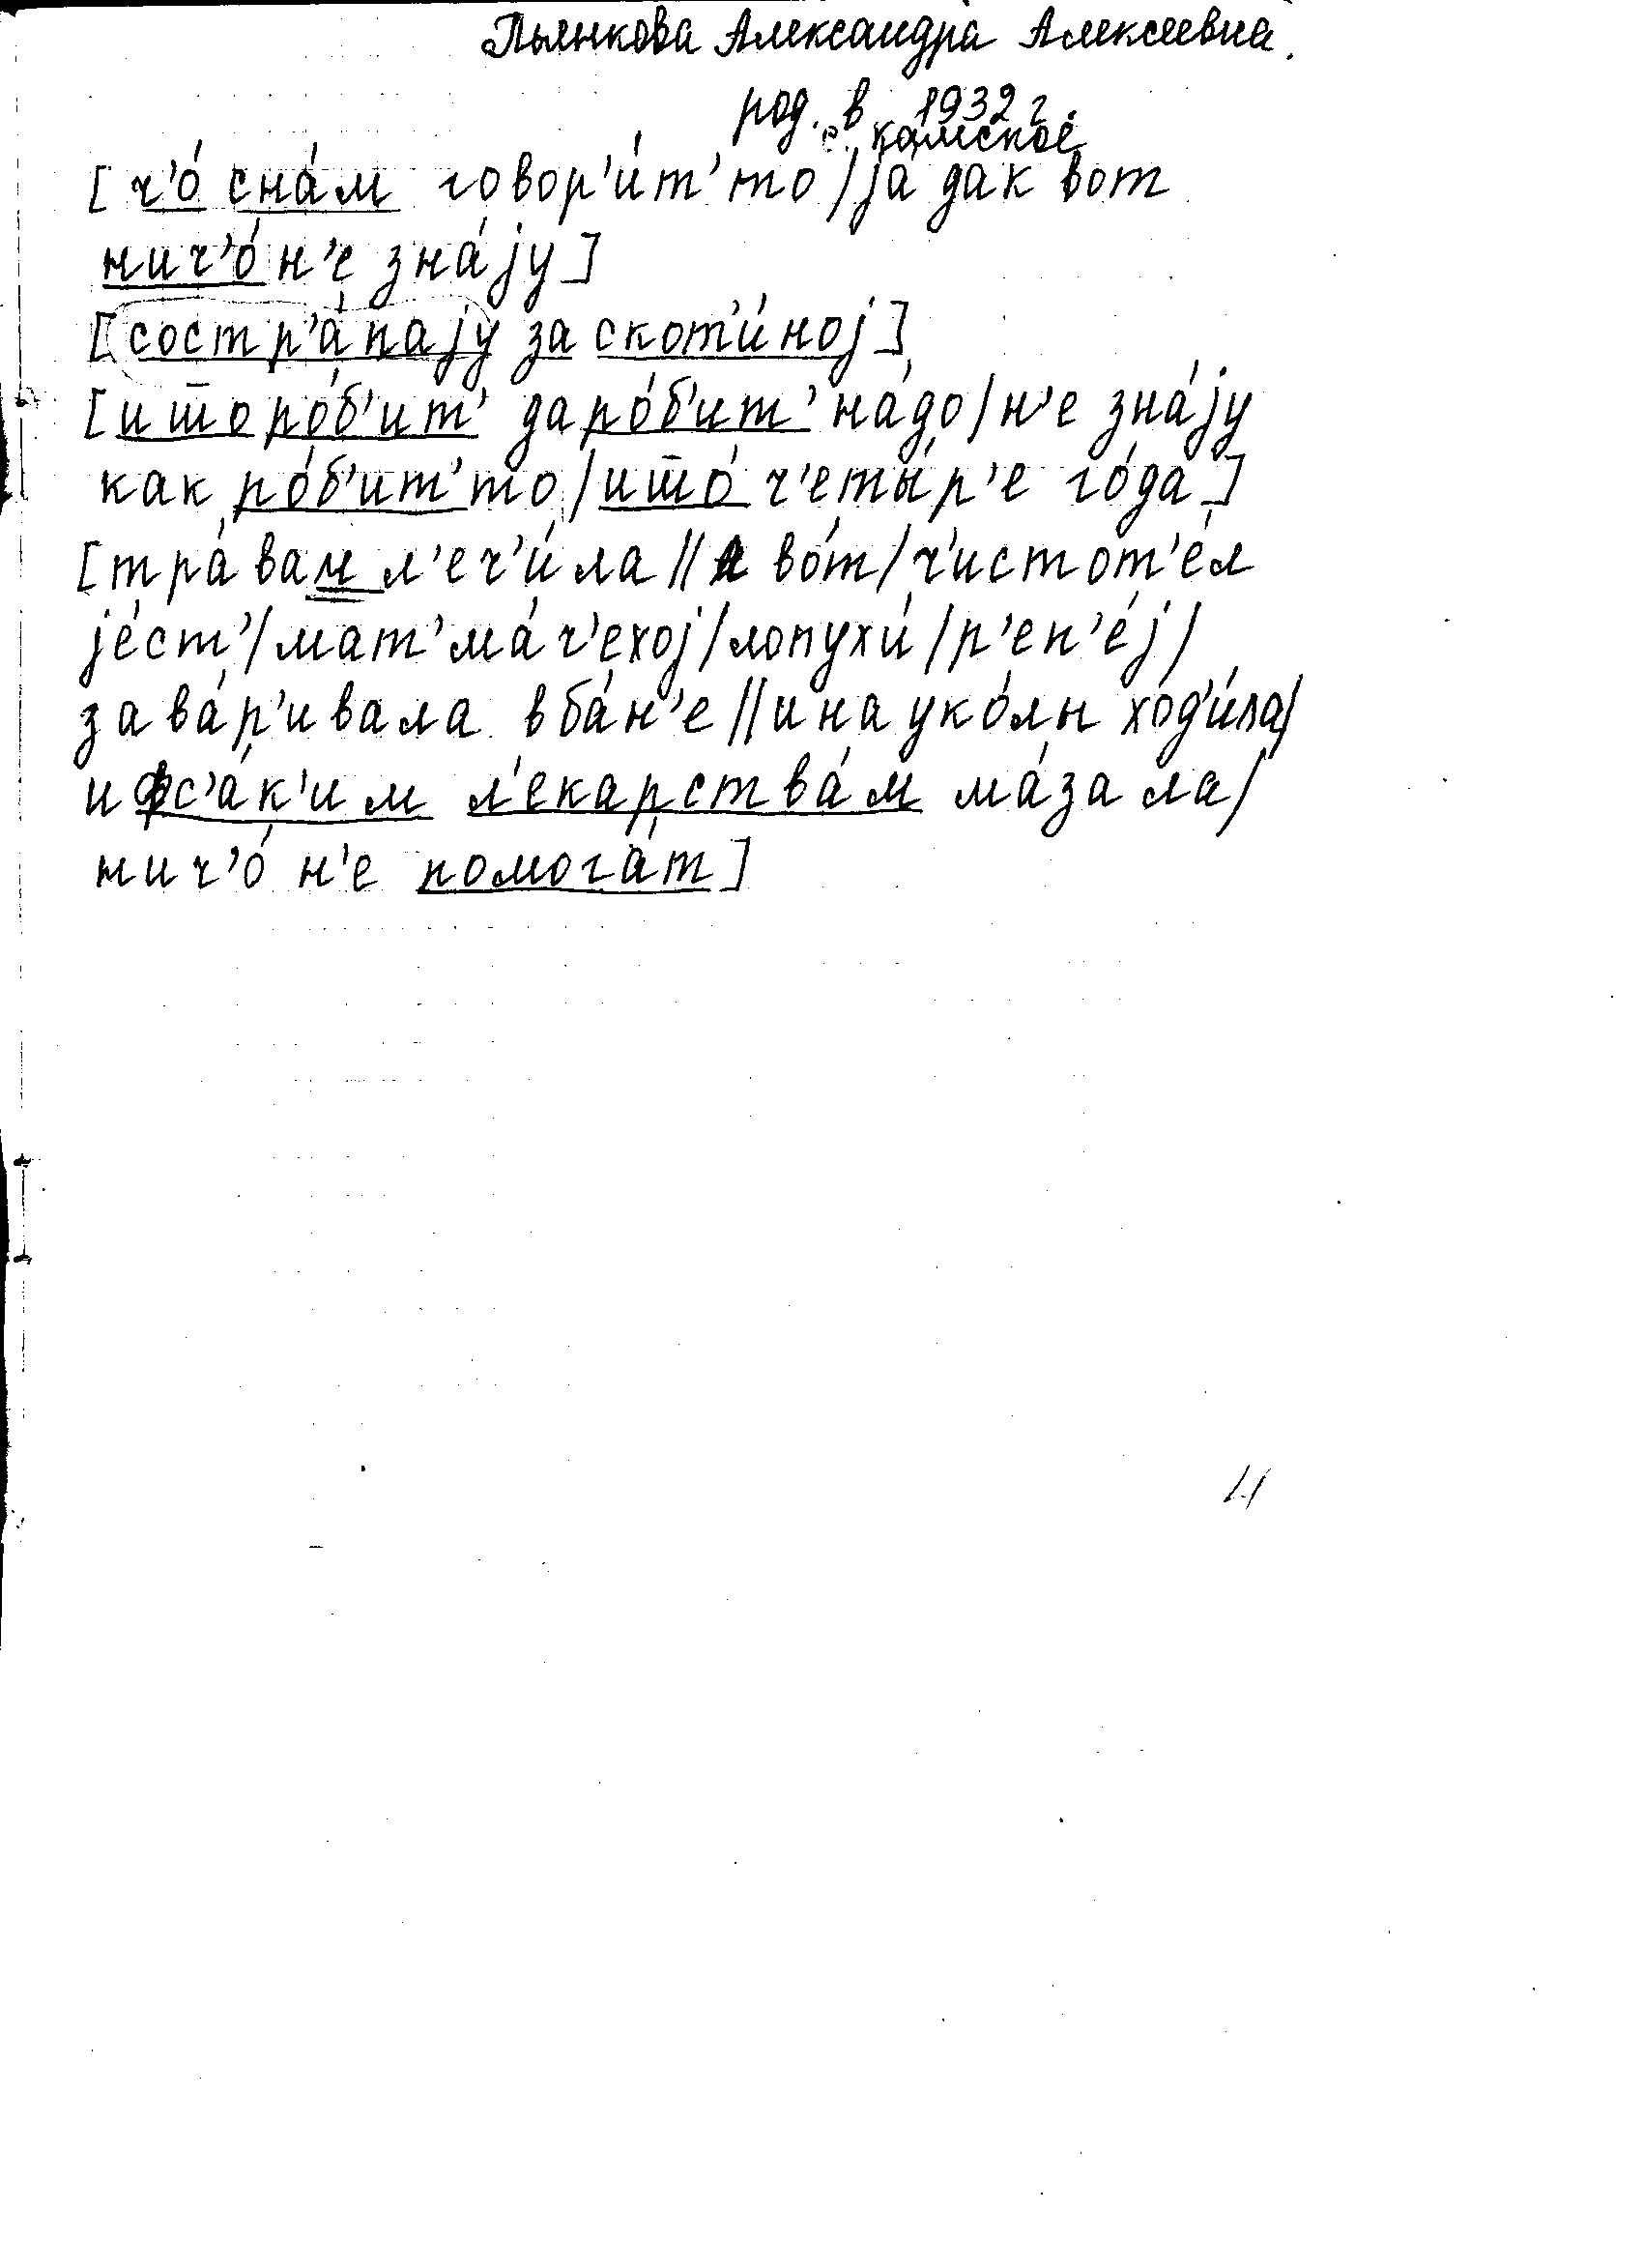 Пьянкова Александра Алексеевна.
род. в 1932 г.
с. Камское
[ч'о́ сна́м говор'и́т'то/jа дак вот
нич'о́ н'е зна́jу]
[состр'а́паjу за скот'и́ноj]
[ишо ро́б'ит' да ро́б'ит' на́до/н'е зна́jу
как ро́б'ит'то/ишо́ ч'еты́р'е го́да]
[тра́вам л'еч'и́ла//А во́т/ч'истот'е́л
jе́ст'/мат'ма́ч'ехоj/лопухи́/р'еп'е́j/
зава́р'ивала в ба́н'е//и на уко́лы ход'и́ла/
и фс'а́к'им л'екарства́м ма́зала/
нич'о́ н'е помога́т]